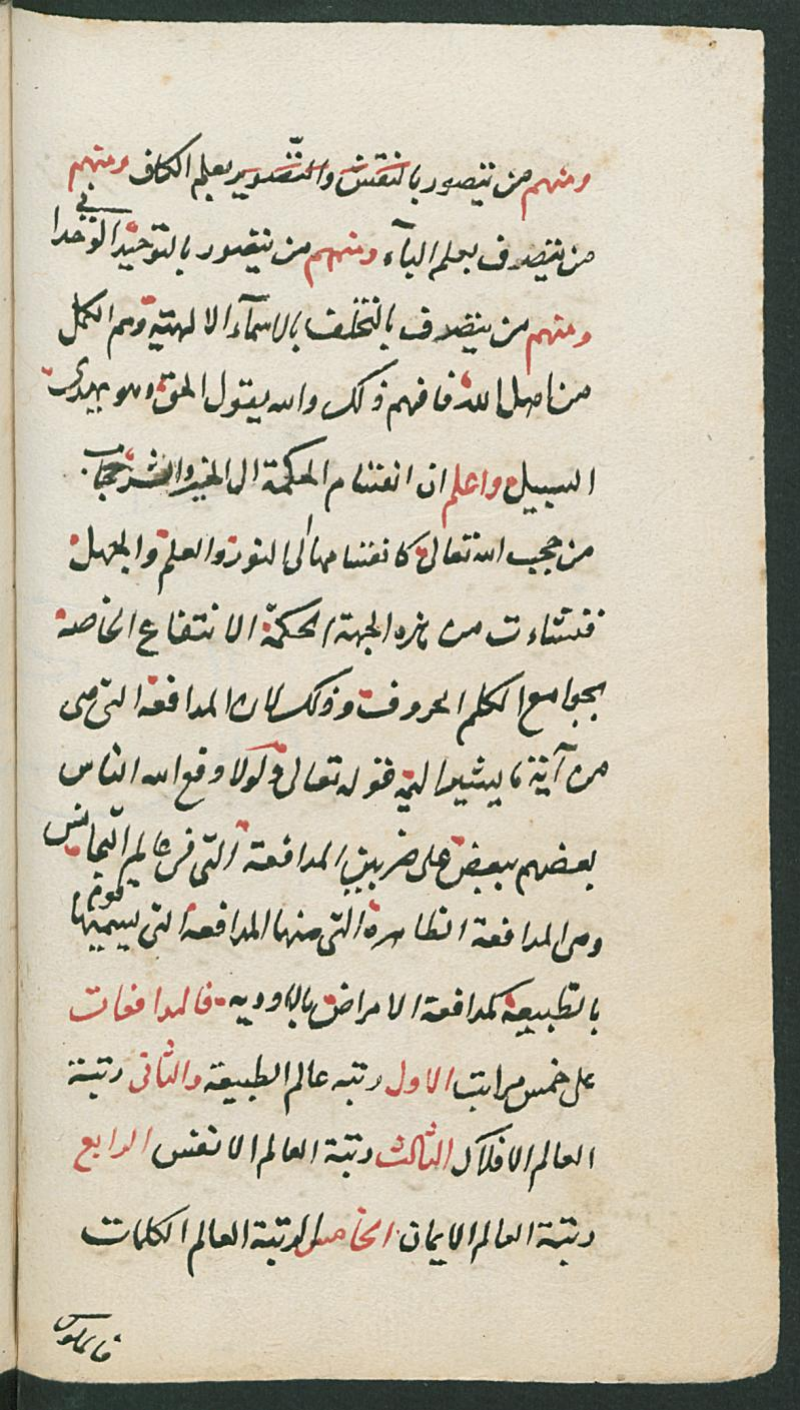 ومنهم من يتصور بالنقش والتصوير بعلم الكاف ومنهم
من يتصرف بعلم الباء ومنهم من يتصور بالتوحيد في
ومنهم من يتصرف بالتخلق بالاسماء الالهية وهم الكمل
من اهل الله فافهم ذلك والله يقول الحق وهو يهدى
السبيل واعلم ان انقسام الحكمة الى الخير والشر حجاب
من حجب الله تعالى كانقسامها الى النور والعلم والجهل
فنشاءت من هذه الجهة الحكمة الانتفاع الخاصة
بجوامع الكلم الحروف وذلك لان المدافعة التى هى
من آية ما يشير اليه قوله تعالى ولولا دفع الله الناس
بعضهم ببعض على ضربين المدافعة التى فى عالم التجانس
وهى المدافعة الظاهرة التى منها المدافعة التى يسميها قوم
بالطبيعة كمدافعة الامراض بالادويه فالمدافعات
على خمس مراتب الاول رتبه عالم الطبيعة والثانى رتبة
العالم الافلاك الثالث رتبة العالم الانفس الرابع
رتبة العالم الايمان الخامس الرتبة العالم الكلمات